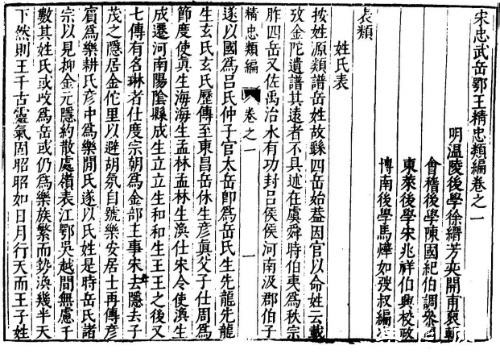 宋忠武岳鄂王精忠類編卷之一
明溫陵後學徐縉芳奕開甫輯
會稽後學陳國紀伯調叅
東萊後學宋兆祥伯興校政
博南後學馬燁如弢叔編次
表類
姓氏表
按姓源類譜岳姓故縣四岳始蓋因官以命姓云載
攷金陀遺譜其遠者不具述在虞舜時伯夷爲秩宗
胙四岳又佐禹治水有功封呂侯侯河南汲郡伯子
精忠類編 卷之一
遂以國爲呂氏仲子官太岳卽爲岳氏生先龍先龍
生玄氏玄氏歷傳至東昌岳休生彥眞父子仕周爲
節度使眞生海海生孟林孟林生渙仕宋令使渙生
成遷河南陽陰縣成生立立生和和生王王之後又
七傳有名琳者仕度宗朝爲金部主事宋去隱去子
茂之隱居金佗里以避胡氛自號樂安居士再傳彥
賓爲樂耕氏彥中爲樂閒氏遂以氏姓是時岳氏諸
宗以見抑金元隱約散處嶺表江鄂吳越間無慮千
數其姓氏或攺爲岳或仍爲樂族繁而勢渙幾半天
下然則王千古靈氣固昭昭如日月行天而王子姓